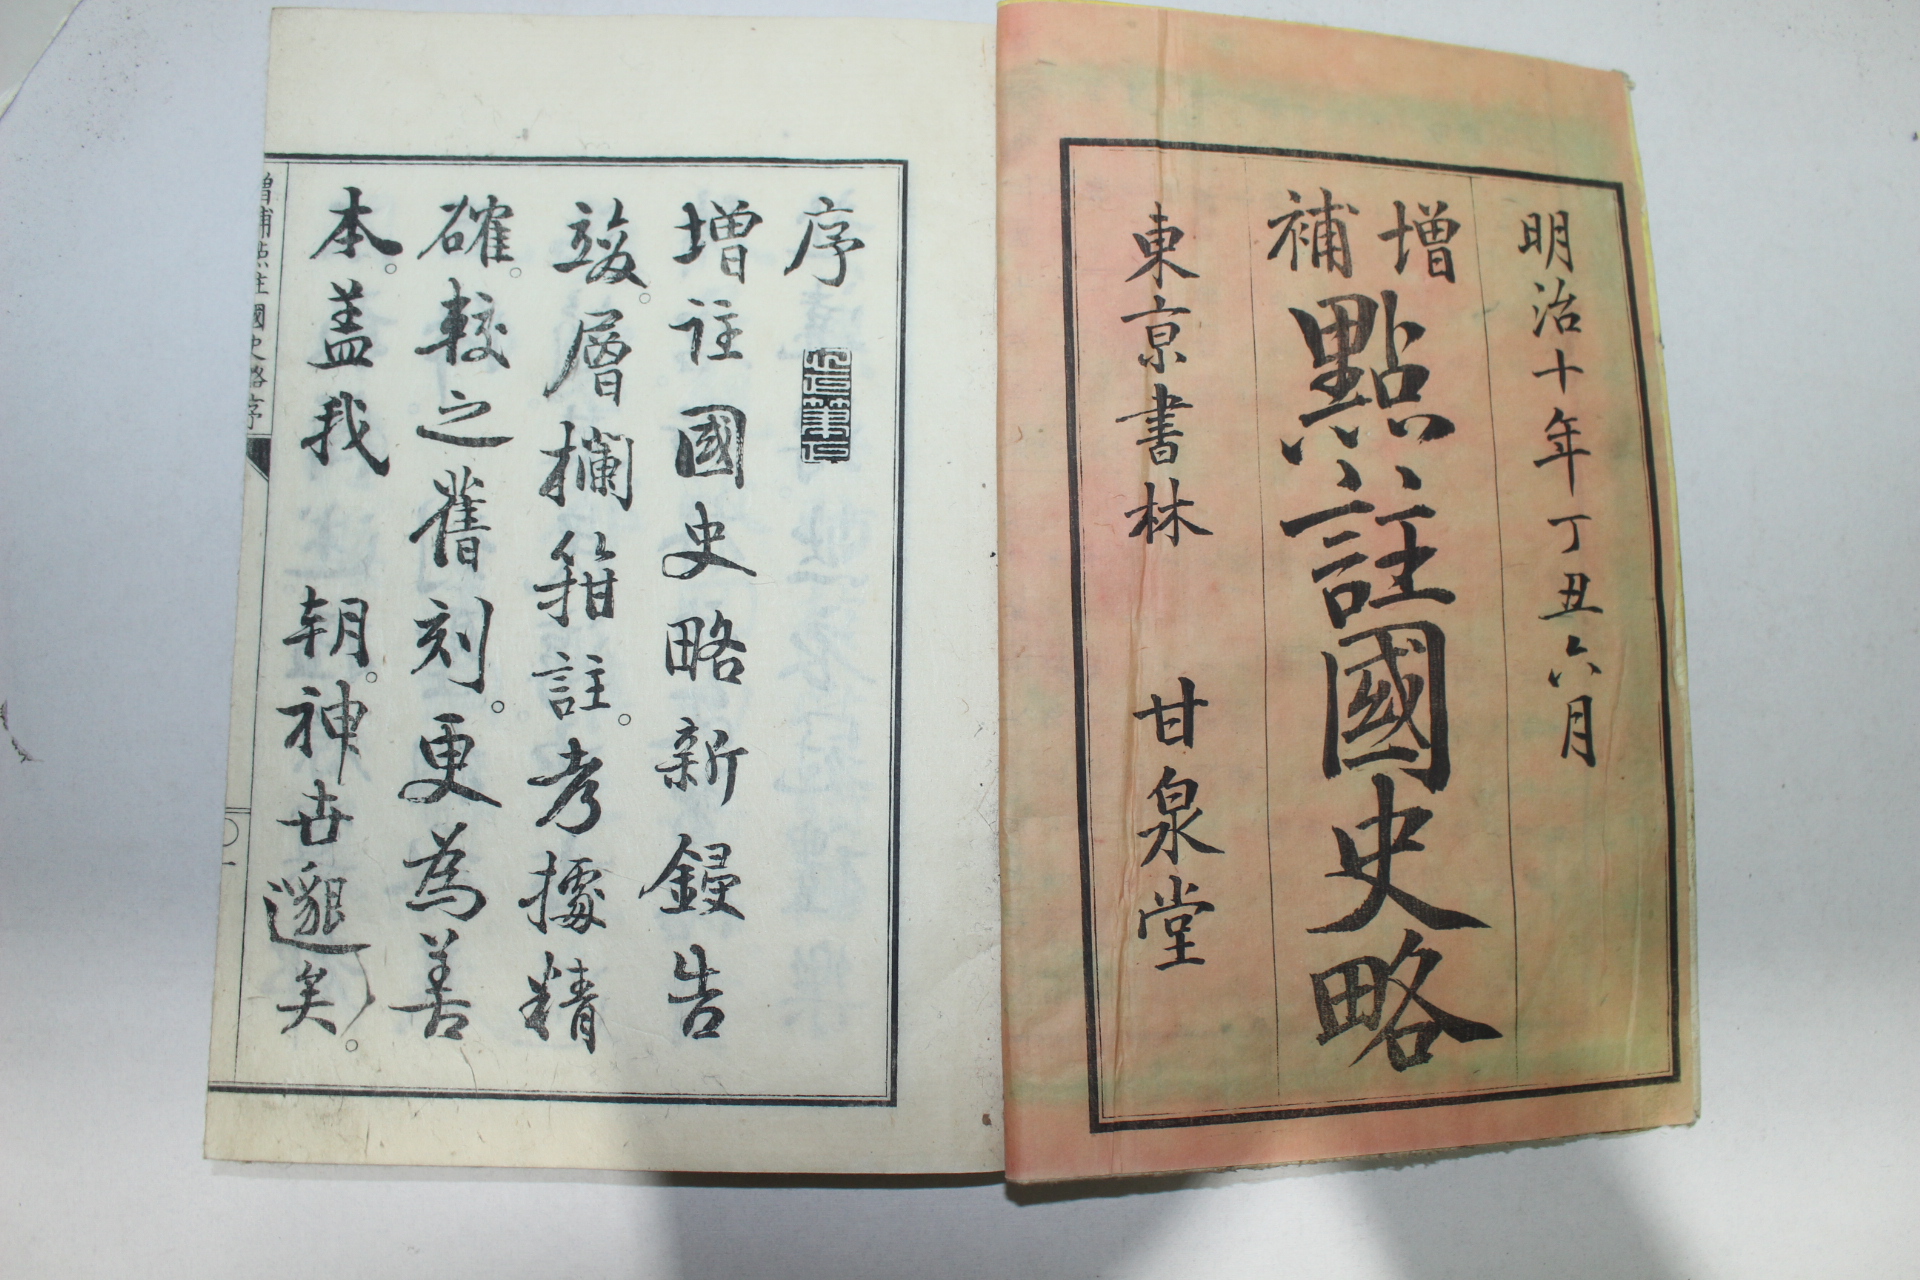 明治十年丁丑六月
增補
點註國史略
東京書林 甘泉堂
序
增註國史略新鋟告
竣。層欄箝註。考據精
確。較之舊刻。更為善
本。蓋我 朝。神世邈矣。
增補点註國史略序
一